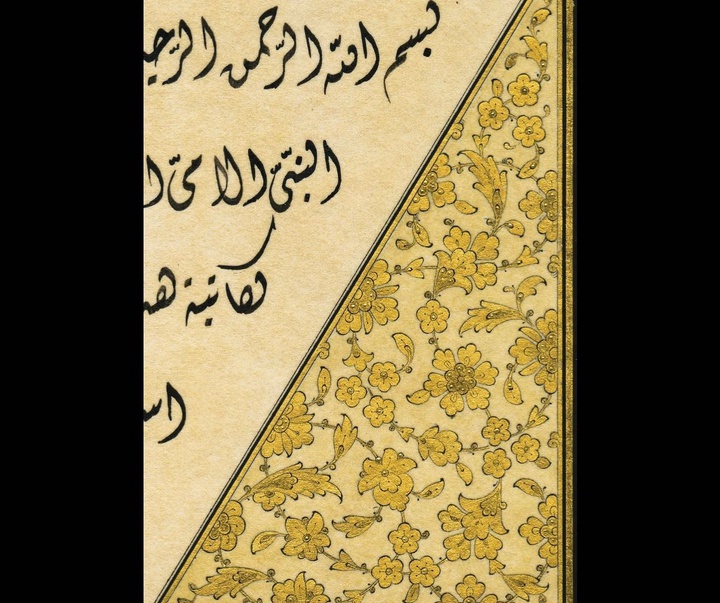 بسم الله الرحمن الرحيـ
النبيّ الامىّ ا
لكاتبة هـ
اسـ